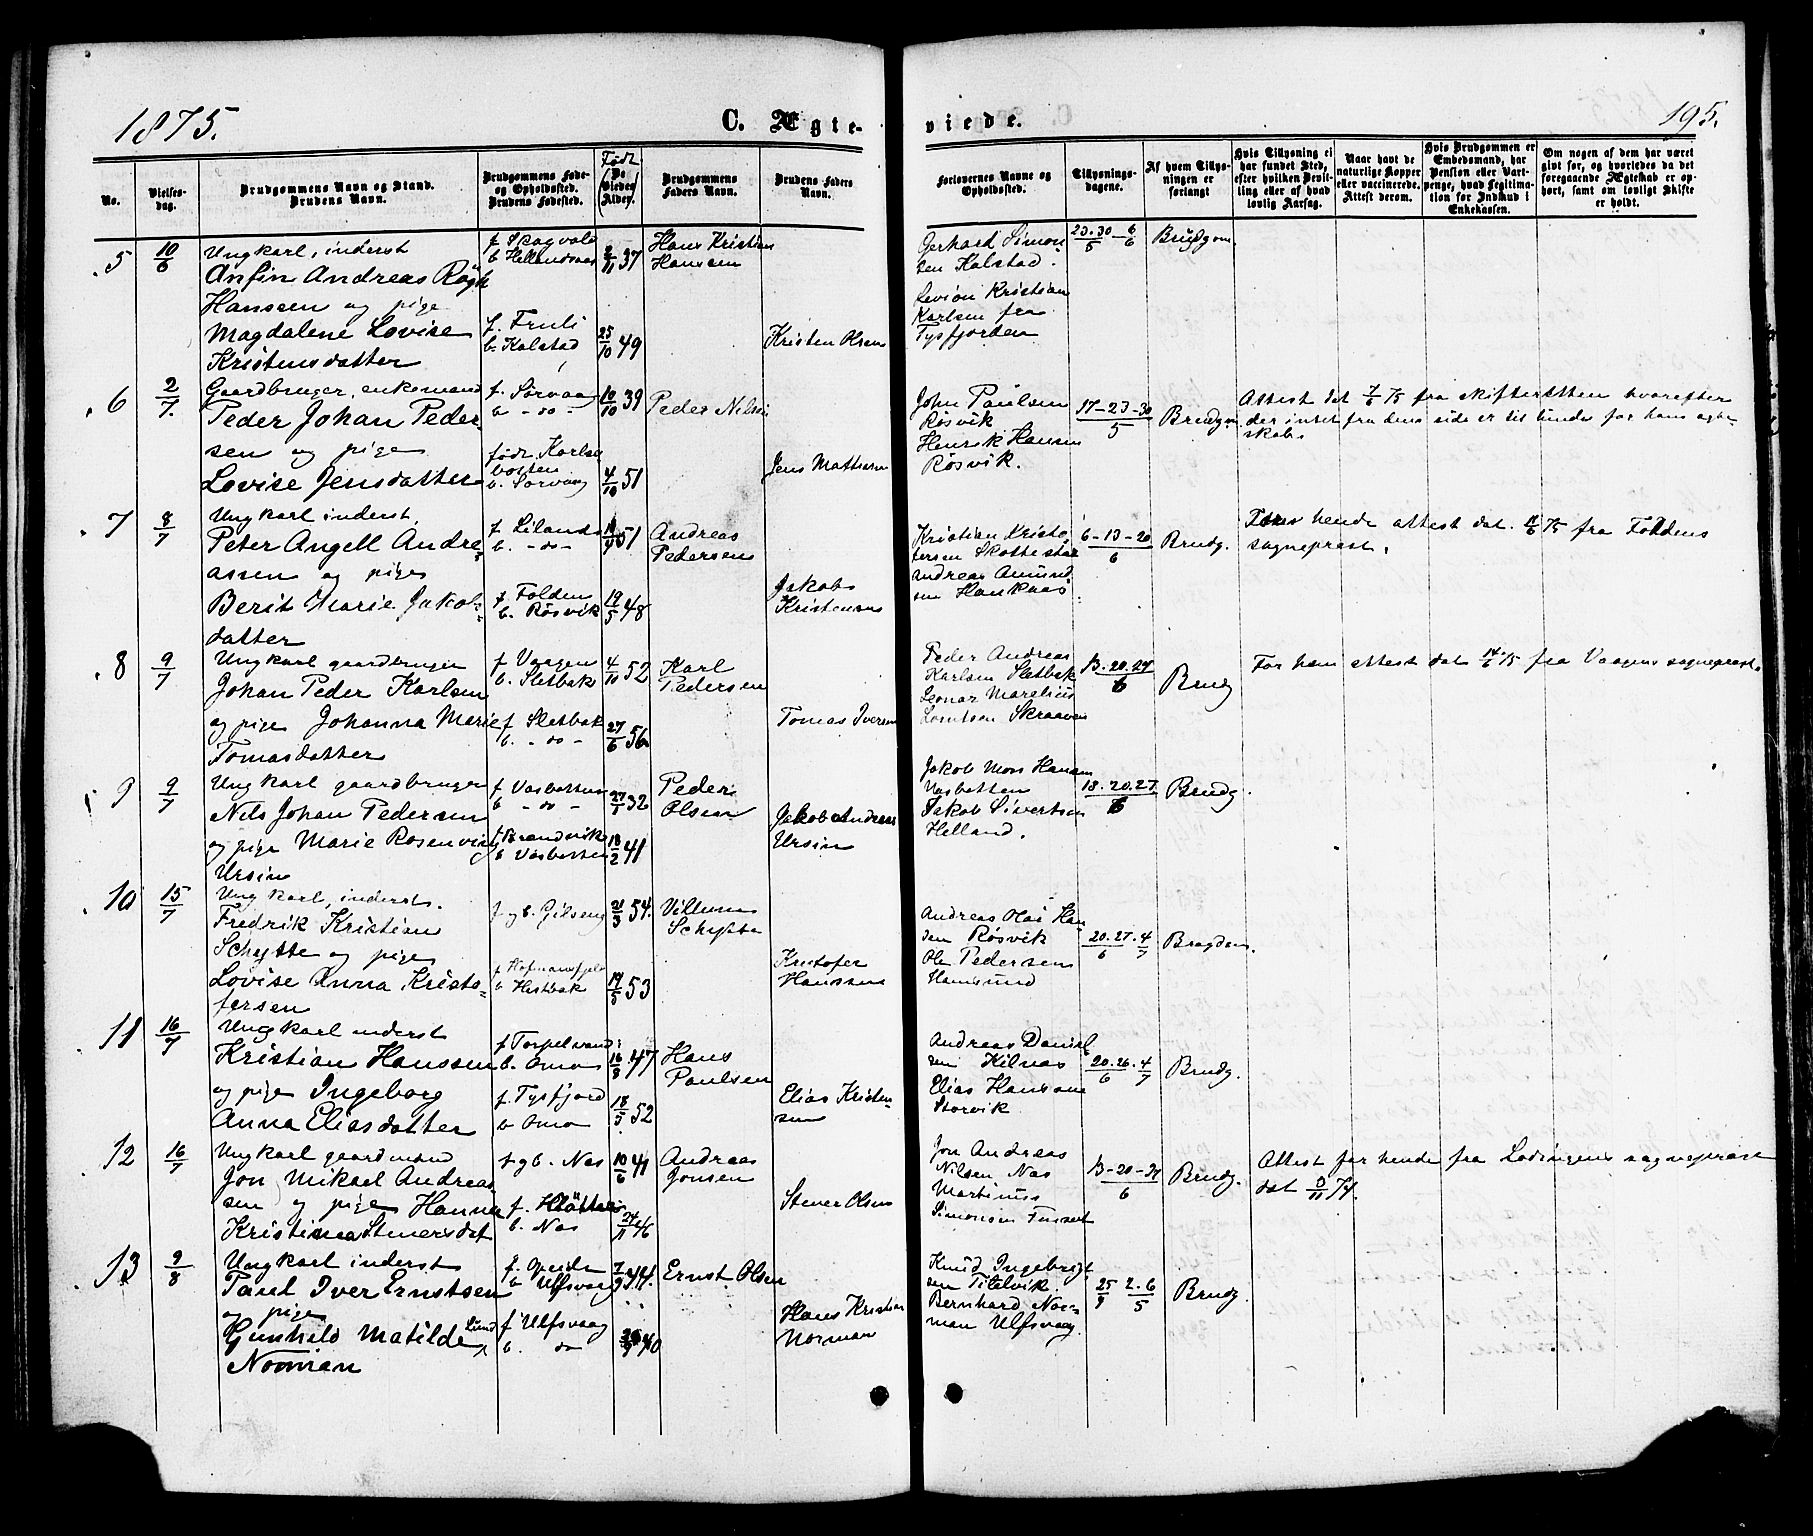 1875.
C. Ægte-
viede.
195.
No.
Vielses-
dag.
Brudgommens Navn og Stand.
Brudens Navn.
Brudgommens Føde-
og Opholdssted.
Brudens Fødested.
Født
De
Viedes
Alder.
Brudgommens
Faders Navn.
Brudens Faders
Navn.
Forlovernes Navne og
Opholdssted.
Tillysnings-
dagene.
Af hvem Tillys-
ningen er
forlangt
Hvis Tillysning ei
har fundet Sted,
efter hvilken Bevil-
ling eller af hvad
lovlig Aarsag.
Naar havt de
naturlige Kopper
eller vaccinerede.
Attest derom.
Hvis Brudgommen er
Embedsmand, har
Pension eller Vart-
penge, hvad Legitima-
tion for Indskud i
Enkekassen.
Om nogen af dem har været
givt før, og hvorledes da det
foregaaende Ægteskab er op-
hørt, samt om lovligt Skifte
er holdt.
5 10/6 Ungkarl, inderst
Anfin Andreas Rögh
Hanssen og pige
Magdalene Lovise
Kristensdatter
f. Skogvold
b. Hellandsnes
2/11 37
Hans Kristian
Hanssen
f. Fruli
b. Kalstad
25/10 49
Kristen Olsen
Gerhard Simon-
sen Kalstad.
Levion Kristian
Karlsen fra
Tysfjorden
23.30-6
5 6
Brudgom
6 2/7 Gaardbruger, enkemand
Peder Johan Peder-
sen og pige
Lovise Jensdatter
f. Sørvaag
b - do -
10/10 39
Peder Nilsen
født Karlsø
botten
b. Sørvaag
4/10 51
Jens Mattisen
John Paulsen
Røsvik
Henrik Hansen
Røsvik.
17-23-30
5
Brudgom
Attest dat 7/6 75 fra skifteretten hvorefter
der intet fra dens side er til hinder for hans ægte-
skab.
7 8/7 Ungkarl inderst.
Peter Angell Andre-
assen og pige
Berit Marie Jakobs-
datter
f Lilands
b. - do -
51
Andreas
Pedersen
f Folden
b. Røsvik
19/5 48
Jakob
Kristensen
Kristian Kristo-
fersen Skottestad
Andreas Amund-
sen Hankaas
6-13-20
6
Brudg.
For hende attest dat. 75 fra Foldens
sogneprest.
8 9/7 Ungkarl gaardbruger
Johan Peder Karlsen
og pige Johanna Marie
Tomasdatter
f Vaagen
b. Sletbak
4/10 52
Karl
Pedersen
f Sletbak
b. - do -
27/6 56
Tomas Iversen
Peder Andreas
Karlsen Sletbak
Leonar Marelius
Lorntsen Skraaven
13.20.27
6
Brudg
For ham attest dat 14/6 75 fra Vaagens sogneprest.
9 9/7 Ungkarl gaardbruger
Nils Johan Pedersen
og pige Marie Rosenving
Ursin
f Vasbotten
b - do -
27/1 32
Peder
Olsen
f Brandvik
b Vasbotten
18/2 41
Jakob Andreas
Ursin
Jakob Mons Hansen
Vasbotten
Jakob Sivertsen
Helland.
18.20.27
6
Brudg.
10 15/7 Ungkarl, inderst.
Fredrik Kristian
Schytte og pige
Lovise Anna Kristo-
fersen
f og b. Gilseng
21/3 54.
Villum
Schytte
b Hestbak
19/5 53
Kristofer
Hanssen
Andreas Olai Han-
sen Røsvik
Ole Pedersen
Hamsund
20.27.4
6 7
Brugdom.
11 16/7 Ungkarl inderst
Kristian Hanssen
og pige Ingeborg
Anna Eliasdatter
f Torpelvand
b. Omo
16/8 47
Hans
Paulsen
f. Tysfjord
b Omo
18/5 52
Elias Kristen-
sen
Andreas Daniel-
sen Kilnæs
Elias Hansen
Storvik
20.26.4
6 7
Brudg.
12 16/7 Ungkarl gaardmand
Jon Mikael Andreas-
sen og pige Hanna
Kristina Stenersdat
f og b. Nes
10/6 41
Andreas
Jonsen
b. Nes
24/11 46
Stener Olsen
Jon Andreas
Nilsen Nes
Martinus
Simonsen
13-20-27
6
Brudg.
Attest for hende fra Lødingens sogneprest
dat 74.
13 9/8 Ungkarl inderst
Paul Iver Ernstsen
og pige
Gunhild Matilde Lund
Norman
f. Opeide
b Ulfsvaag
44.
Ernst Olsen
f Ulfsvaag
b. do
40
Hans Kristian
Norman
Knud Ingebrigt-
sen Titelvik
Bernhard Nor-
man Ulfsvaag
25 2.6
5
Brudg.